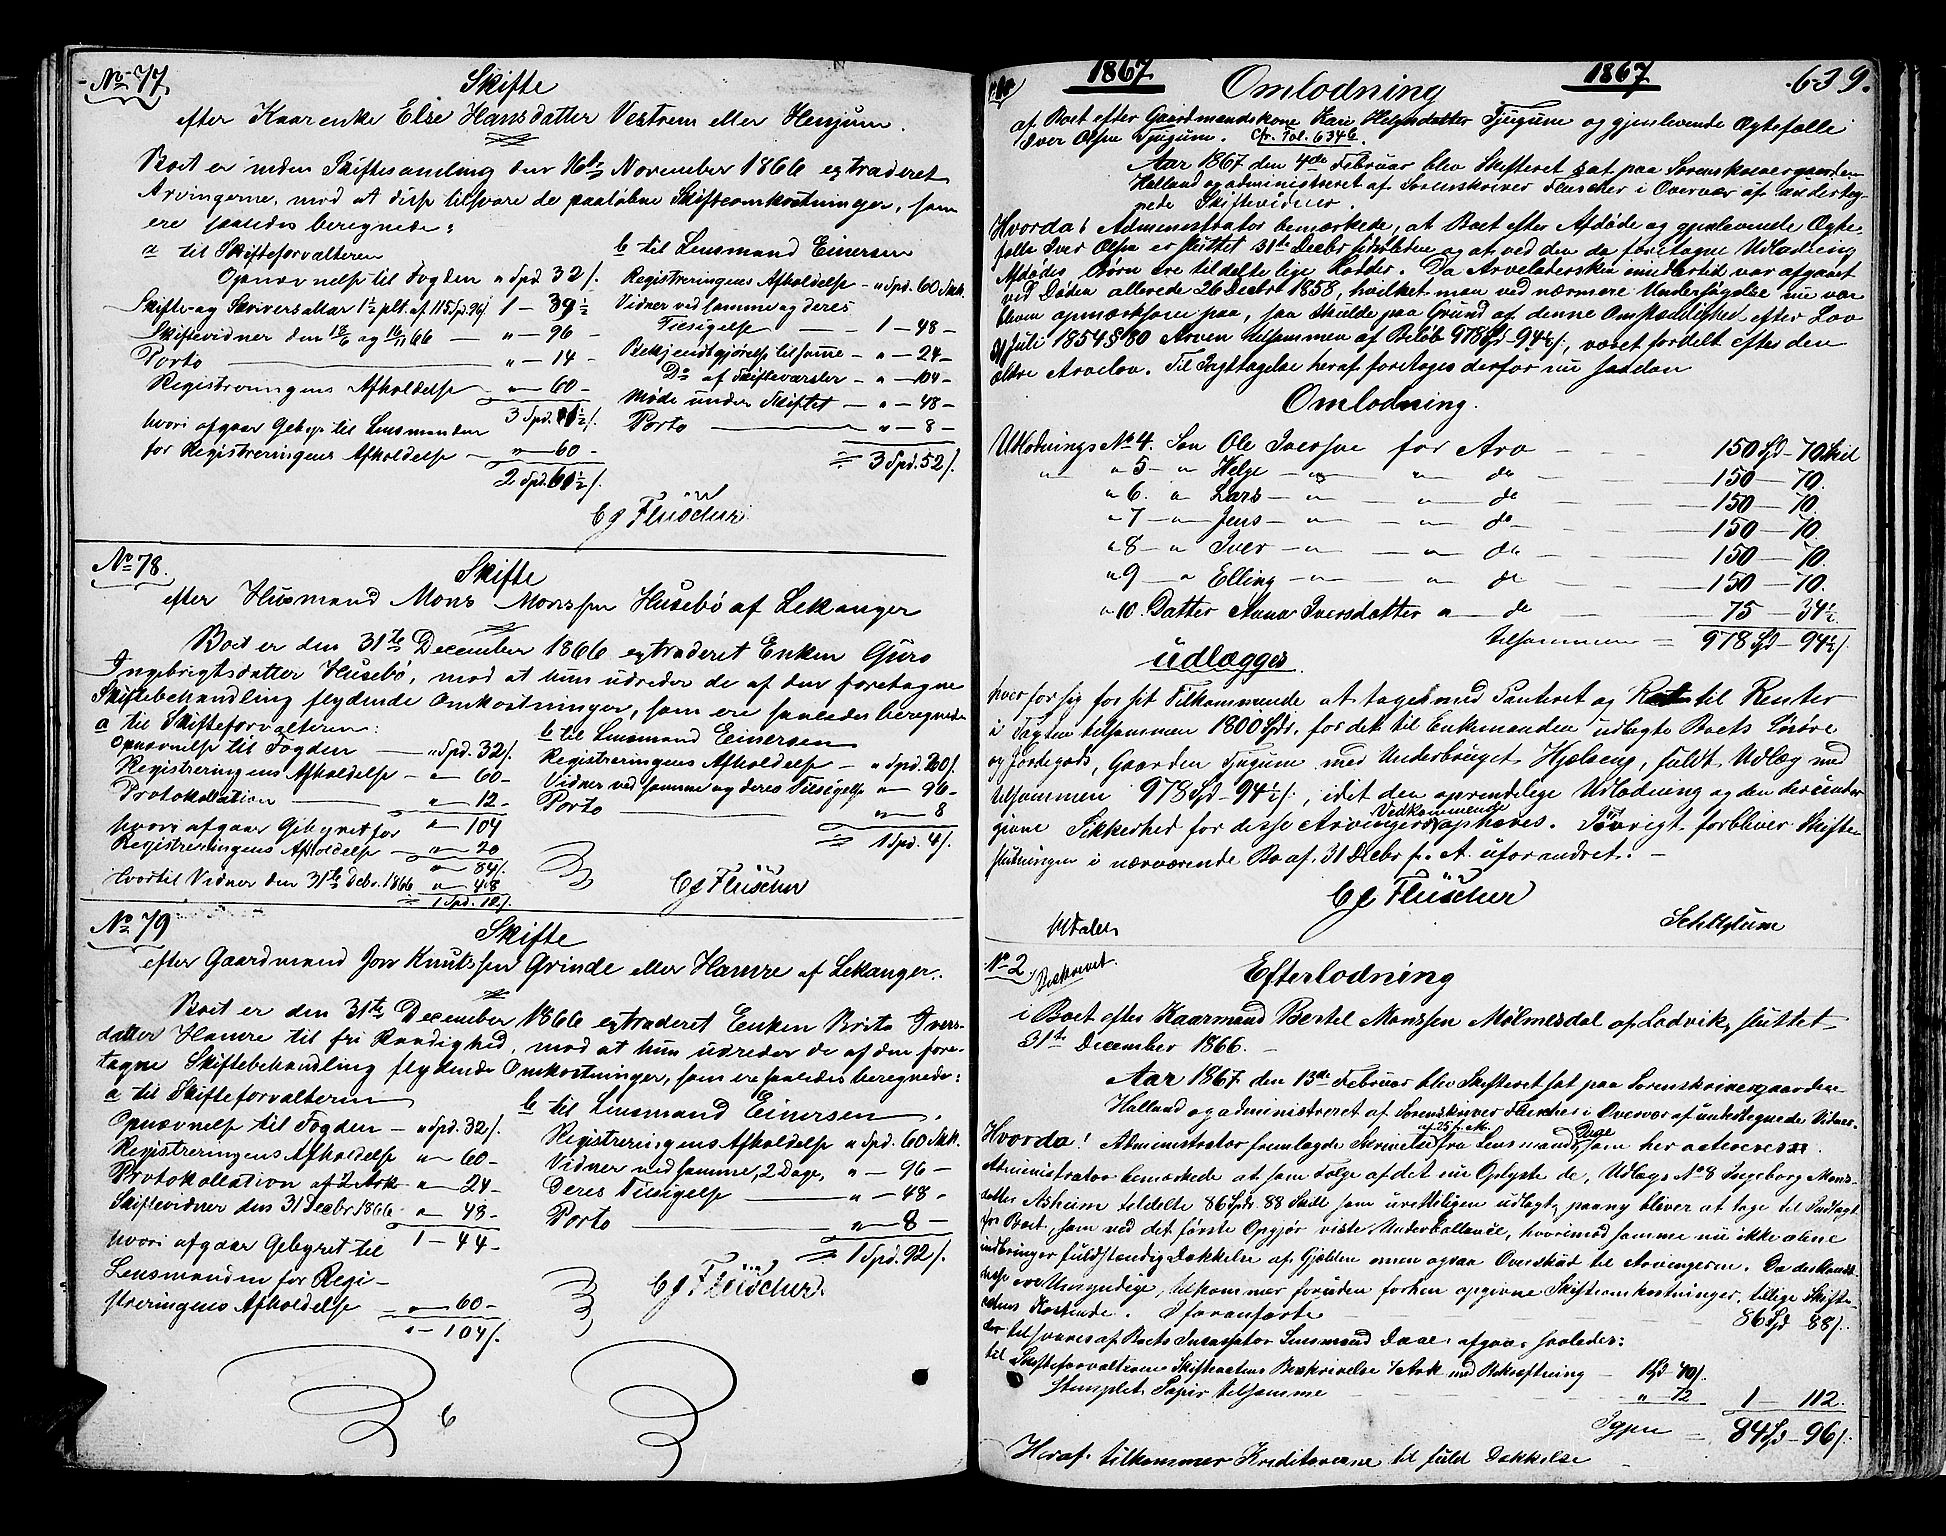 No 77
Skifte
efter Kaarenke Else Hansdatter Vestrem eller Henjum.
Boet er inden Skiftesamling den 16de November 1866 extraderet
Arvingerne, mod at disse tilsvare de paaløbne Skifteomkostninger, som
ere saaledes beregnede:
a til Skifteforvalteren
Opnævnelse til Fogden " Spd 32 /.
Skifte- og Skriversallar 1½ plt. af 115 Spd. 96/. 1 - 39½
Skiftevidner den 18/6 og 16/11 66 — " - 96 -
Porto — " - 14 -
Registreringens Afholdelse — " - 60 -
3 Spd. 61½ /.
hvori afgaar Gebyr til Lensmanden
for Registreringens Afholdelse — " - 60 -
2 Spd. 61½ /.
b til Lensmand Einersen
Registreringens Afholdelse - " Spd. 60 Skk.
Vidner ved samme og deres
Tilsigelse — 1 - 48 -
Bekjendtgjørelse tilsamme - " - 24 -
Do af Skifteværsler - " - 104 -
Møde under Skiftet — " - 48 -
Porto — " - 8 -
3 Spd. 52 /.
Cg Fleischer
No 78.
Skifte
efter Husmand Mons Monssen Husebø af Lekanger
Boet er den 31te December 1866 extraderet Enken Guro
Ingebrigtsdatter Husebø, mod at hun udreder de af den foretagne
Skiftebehandling flydende Omkostninger, som ere saaledes beregnede
a til Skifteforvalteren:
Opnævnelse til Fogden — " Spd. 32 /.
Registreringens Afholdelse - " - 60 -
Protokollation — " - 12 -
" - 104
hvori afgaar Gebyret for
Registreringens Afholdelse — " - 20
" - 84 /.
Hvortil Vidner den 31te Debr. 1866 " - 48
1 Spd. 12 /.
b til Lensmand Einersen
Registreringens Afholdelse - " Spd. 20 /.
Vidner ved samme og deres Tilsigelse " - 96 -
Porto — " - 8
1 Spd. 4 /.
Cg Fleischer
No 79
Skifte
efter Gaardmand Jon Knutssen Grinde eller Hamre af Lekanger.
Boet er den 31te December 1866 extraderet Enken Brita Ivers-
datter Hamre til fri Raadighed, mod at hun udreder de af den fore-
tagne Skiftebehandling flydende Omkostninger, som ere saaledes beregnede:
a til Skifteforvalteren
Opnævnelse til Fogden - " Spd. 32 /.
Registreringens Afholdelse " - 60 -
Protokollation af 2 Ark " - 24 -
Skiftevidner den 31 Decbr 1866 " - 48 -
1 - 44 -
hvori afgaar Gebyret til
Lensmanden for Regi-
streringens Afholdelse — " - 60 -
" - 104 /.
b til Lensmand Einersen.
Registreringens Afholdelse " Spd. 60 Skk.
Vidner ved samme, 2 Dage, " - 96 -
Deres Tilsigelse — " - 48 -
Porto — " - 8 -
1 Spd. 92 /.
Cg Fleischer
1867 1867 639.
Omlodning
af Boet efter Gaardmandskone Kari Helgesdatter Tjugum og gjenlevende Ægtefælle
Iver Olsen Tjugum. Cfr. Fol. 634 b.
Aar 1867 den 4de Februar blev Skifteret sat paa Sorenskrivergaarden
Holland og administreret af Sorenskriver Fleischer i Overvær af underteg-
nede Skiftevidner.
Hvorda! Administrator bemærkede, at Boet efter Afdøde og gjenlevende Ægte-
fælle Iver Olsen er sluttet 31te Decbr sidstleden og at ved den da foretagne Udlodning
Afdødes Børn ere tildelte lige Lodder. Da Arveladersken imidlertid var afgaaet
ved Døden allerede 26 Decbr 1858, hvilket man ved nærmere Undersøgelse nu var
bleven opmærksom paa, saa skulde paa Grund af denne Omstændighed efter Lov
31 Juli 1854 § 80 Arven tilsammen af Beløb 978 Spd - 94½ /., været fordelt efter den
ældre Arvelov. Til Iagttagelse heraf foretages derfor nu saadan
Omlodning.
Udlodnings No 4. Søn Ole Iverssen for Arv — 150 Spd - 70 Skil
" " 5 - " Helge - " " do — 150 - 70.
" 6. " Lars - " " do — 150 - 70.
" 7 - " Jens - " " do — 150 - 70.
" 8 - " Iver - " " do — 150 - 70.
" 9 - " Elling - " " do — 150 - 70.
" 10. Datter Anna Iversdatter " do — 75 - 34½
tilsammen = 978 Spd - 94½ /.
udlægges
hver for sig for sit Tilkommende at tages med Panteret og Ret til Renter
i Tagten tilsammen 1800 Spd. for det til Enkemanden udlagte Boets Løsøre
og Jordegods, Gaarden Tjugum med Underbruget Hjeleng, fuldt Udlæg med
tilsammen 978 Spd - 94½ /., idet den oprindelige Udlodning og den derunder
givne Sikkerhed for disse Arvinger Vedkommende ophæves. Iøvrigt forbliver Skifte-
slutningen i nærværende Bo af 31 Decbr f. A. uforandret. -
Cg Fleischer
No 2. Beskrevet.
Efterlodning
i Boet efter Kaarmand Bertel Monssen Mølmesdal af Ladvik, sluttet
31te December 1866. -
Aar 1867 den 13de Februar blev Skifteret sat paa Sorenskrivergaarden
Holland og administreret af Sorenskriver Fleischer i Overvær af undertegnede Vidner.
Hvorda! Administrator fremlagde Skrivelse af 25 f. M. fra Lensmand Daae, som her acteeres.
Administrator bemærkede at som Følge af det nu Oplyste de, Udlægs No 8 Ingeborg Mons-
datter Asheim tildelte 86 Spd. 88 Skill som urettiligen udlagt, paany bliver at tage til Indtægt
for Boet, som ved det første Opgjør viste Underballance, hvorimod samme nu ikke alene
indbringer fuldstændig Dækkelse af Gjælden men ogsaa Overskud til Arvingerne. Da der
ere Umyndige, tilkommer foruden forhen opgivne Skifteomkostninger, tillige Skifte-
Kostende. Iforanførte — 86 Spd 88 /.
der tilsvares af Boets Incassator Lensmand Daae, afgaar saaledes:
til Skifteforvalteren Skifteactens Beskrivelse Ark med Bekræftning — 1 Spd - 40 /.
Stemplet Papir tilsamme — " - 72 1 - 112.
Igjen — 84 Spd - 96 /.
Heraf tilkommer Kreditorerne til fuld Dækkelse